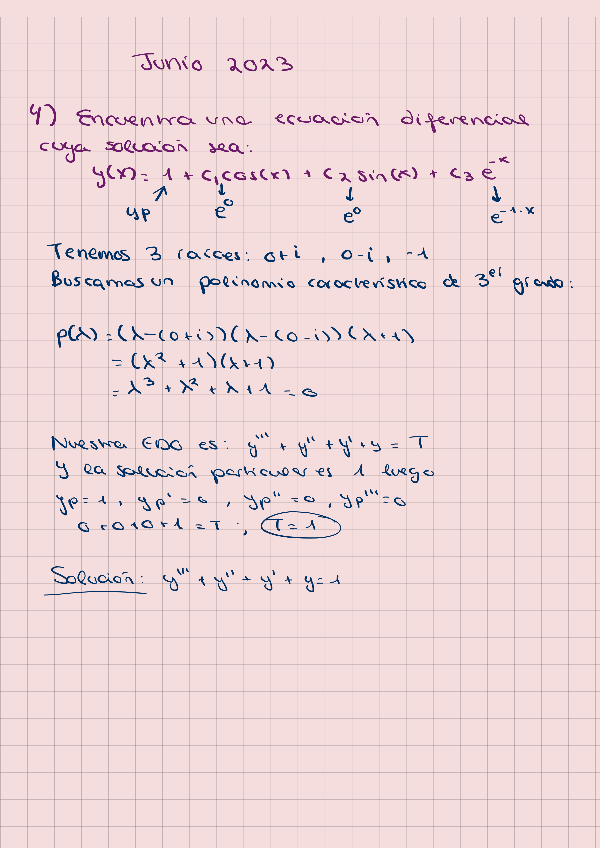 Junio 2023
4) Encuentra una ecuación diferencial
cuya solución sea:
y(x) = 1 + C₁cos(x) + C₂ sin(x) + C₃ e^-x
yp e⁰ e⁰ e^-1·x
Tenemos 3 raíces: 0+i , 0-i , -1
Buscamos un polinomio característico de 3er grado:
p(λ) = (λ-(0+i))(λ-(0-i))(λ+1)
= (λ² + 1)(λ+1)
= λ³ + λ² + λ + 1 = 0
Nuestra EDO es: y''' + y'' + y' + y = T
y la solución particular es 1 luego
yp=1 , yp' = 0 , yp'' = 0 , yp''' = 0
0 + 0 + 0 + 1 = T ; T = 1
Solución: y''' + y'' + y' + y = 1